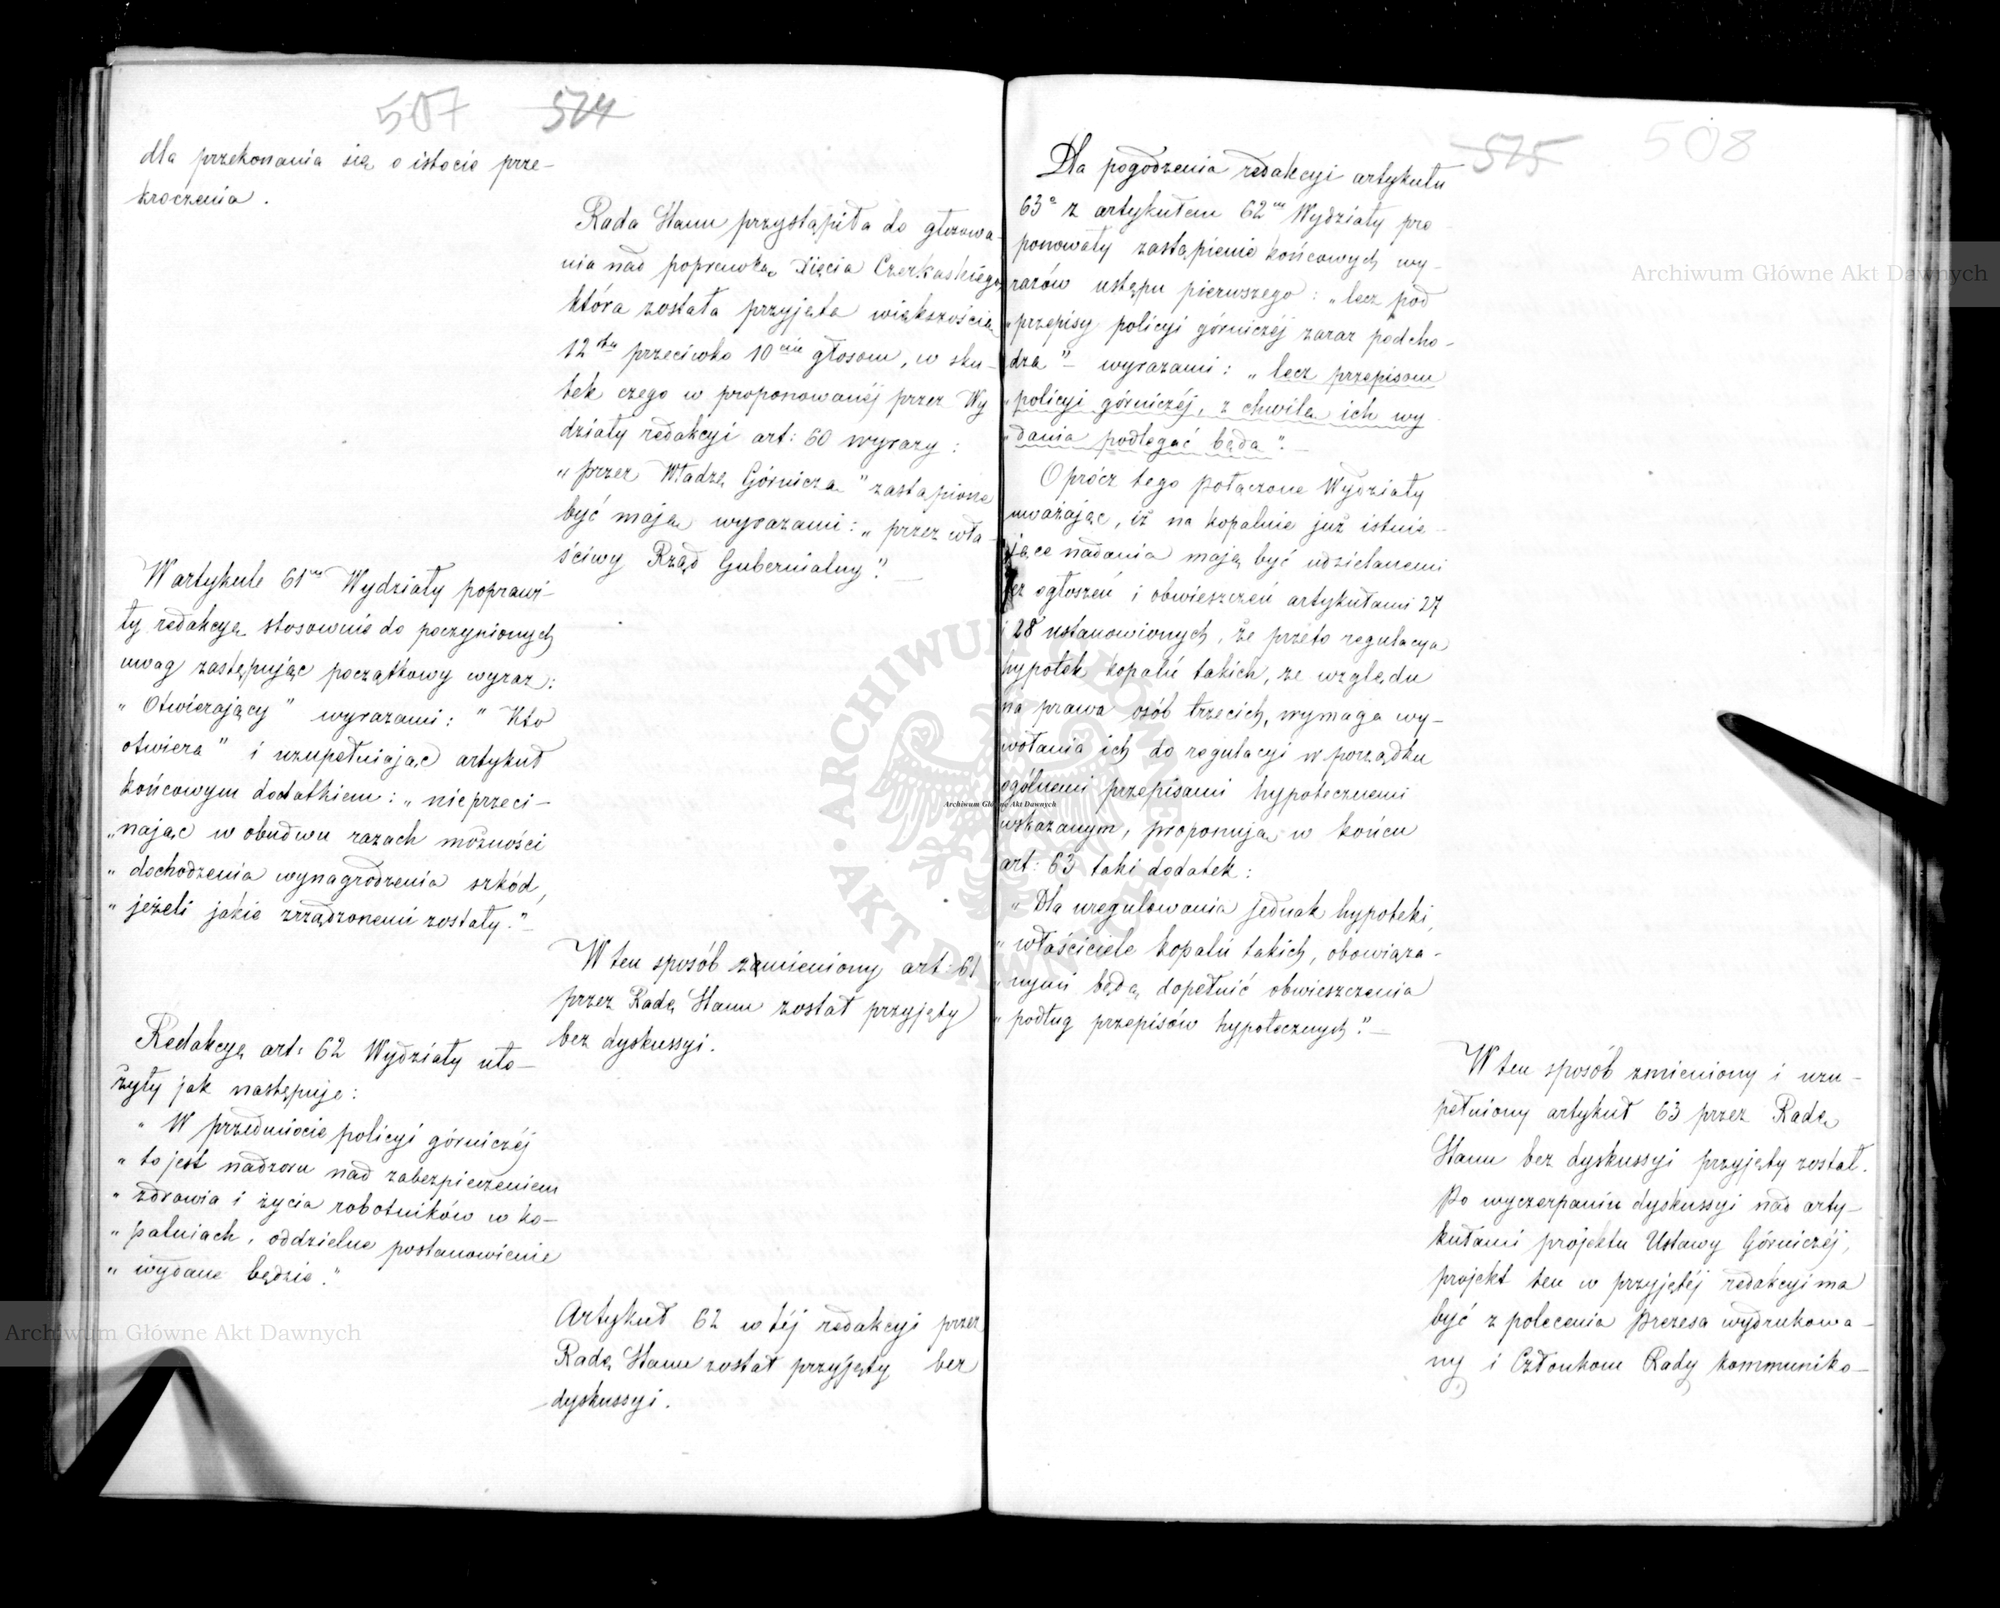 507
524
dla przekonania się o istocie prze-
kroczenia.
Rada Stanu przystąpiła do głosowa-
nia nad poprawką Xięcia Czerkaskiego,
która została przyjęta większością
12stu przeciwko 10ciu głosom, w sku-
tek czego w proponowanéj przez Wy
działy redakcyi art: 60 wyrazy:
„przez Władzę Górniczą" zastąpione
być mają wyrazami: „przez wła-
ściwy Rząd Gubernialny". —
W artykule 61ym Wydziały poprawi-
ły redakcyę stosownie do poczynionych
uwag zastępując początkowy wyraz:
„Otwierający" wyrazami: "Kto
otwiera" i uzupełniając artykuł
końcowym dodatkiem: „nieprzeci-
„nając w obudwu razach możności
„dochodzenia wynagrodzenia szkód,
„jeżeli jakie zrządzonemi zostały." —
W ten sposób zamieniony art: 61
przez Radę Stanu został przyjęty
bez dyskussyi.
Redakcyę art: 62 Wydziały uło-
żyły jak następuje:
„W przedmiocie policyi górniczéj
„to jest nadzoru nad zabezpieczeniem
„zdrowia i życia robotników w ko-
„palniach, oddzielne postanowienie
„wydane będzie."
Artykuł 62 w téj redakcyi przez
Radę Stanu został przyjęty bez
dyskussyi.
525
508
Dla pogodzenia redakcyi artykułu
63o z artykułem 62m Wydziały pro-
ponowały zastąpienie końcowych wy-
razów ustępu pierwszego: „lecz pod
„przepisy policyi górniczéj zaraz podcho-
dzą" — wyrazami: „lecz przepisom
„policyi górniczéj, z chwilą ich wy
„dania podlegać będą". —
Oprócz tego połączone Wydziały
uważając, iż na kopalnie już istnie-
jące nadania mają być udzielanemi
bez ogłoszeń i obwieszczeń artykułami 27
i 28 ustanowionych, że przeto regulacya
hypotek kopalń takich, ze względu
na prawa osób trzecich, wymaga wy-
wołania ich do regulacyi w porządku
ogólnemi przepisami hypotecznemi
wskazanym, proponują w końcu
art: 63 taki dodatek:
„Dla uregulowania jednak hypoteki,
„właściciele kopalń takich, obowiąza-
„nymi będą dopełnić obwieszczenia
„podług przepisów hypotecznych". —
W ten sposób zmieniony i uzu-
pełniony artykuł 63 przez Radę
Stanu bez dyskussyi przyjęty został.
Po wyczerpaniu dyskussyi nad arty-
kułami projektu Ustawy Górniczéj,
projekt ten w przyjętéj redakcyi ma
być z polecenia Prezesa wydrukowa-
ny i Członkom Rady kommuniko-
Archiwum Główne Akt Dawnych
Archiwum Główne Akt Dawnych
Archiwum Główne Akt Dawnych
ARCHIWUM GŁÓWNE AKT DAWNYCH